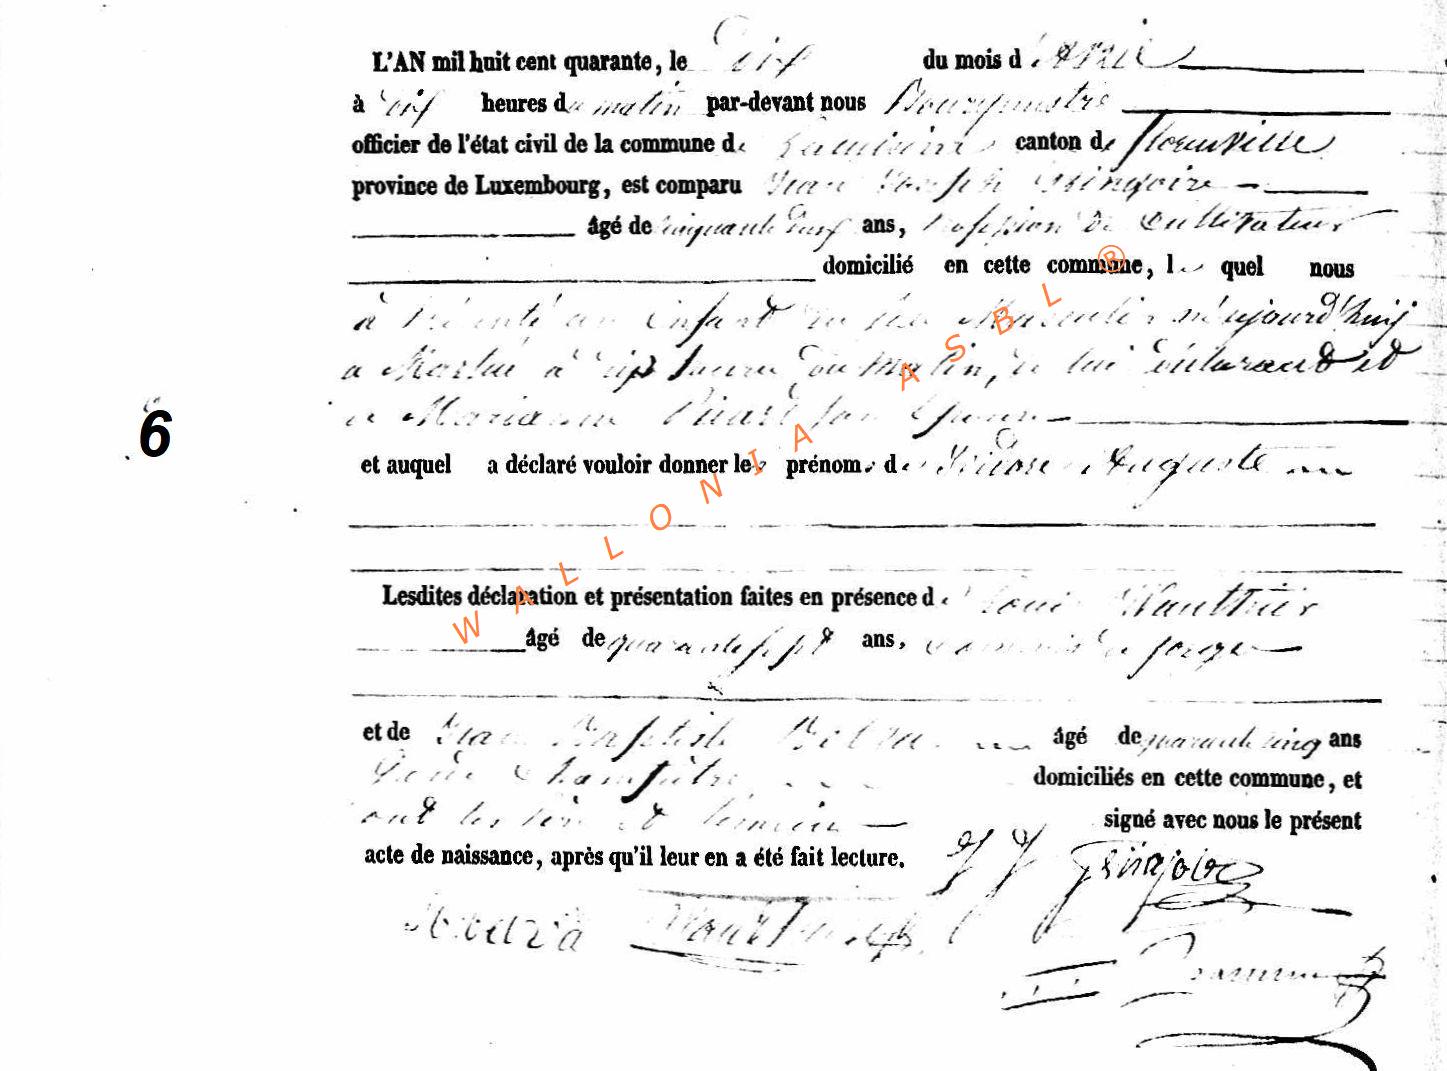 L'AN mil huit cent quarante, le Dix du mois d'Avril
à dix heures du matin par-devant nous Bourgmestre
officier de l'état civil de la commune de canton de florenville
province de Luxembourg, est comparu Jean Joseph
âgé de cinquante ans, profession de Cultivateur
domicilié en cette commune, le quel nous
à présenté un Enfant du sexe Masculin né aujourd'huij
a à six heures du matin, de lui déclarant et
de Marianne son Epouse
et auquel a déclaré vouloir donner les prénoms de Isidore Auguste
Lesdites déclaration et présentation faites en présence de Louis Wauthier
âgé de quarante sept ans, commis de forges
et de Jean Baptiste âgé de quarante cinq ans
Garde Champêtre domiciliés en cette commune, et
ont les père et témoins signé avec nous le présent
acte de naissance, après qu'il leur en a été fait lecture. J J
6
WALLONIA ASBL ®